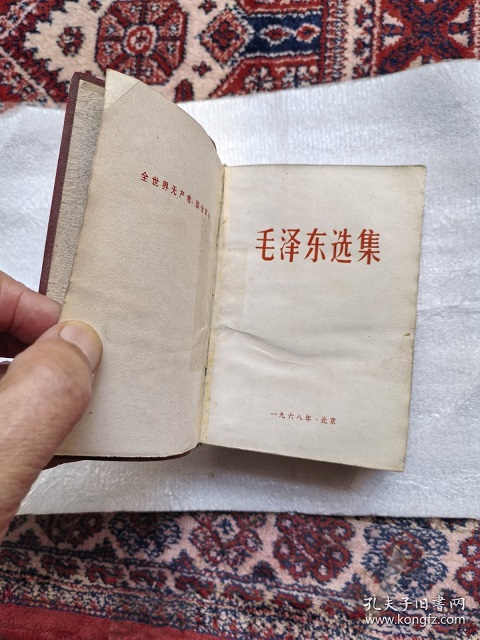 全世界无产者，联合起来
毛泽东选集
一九六八年·北京
孔夫子旧书网
www.kongfz.com